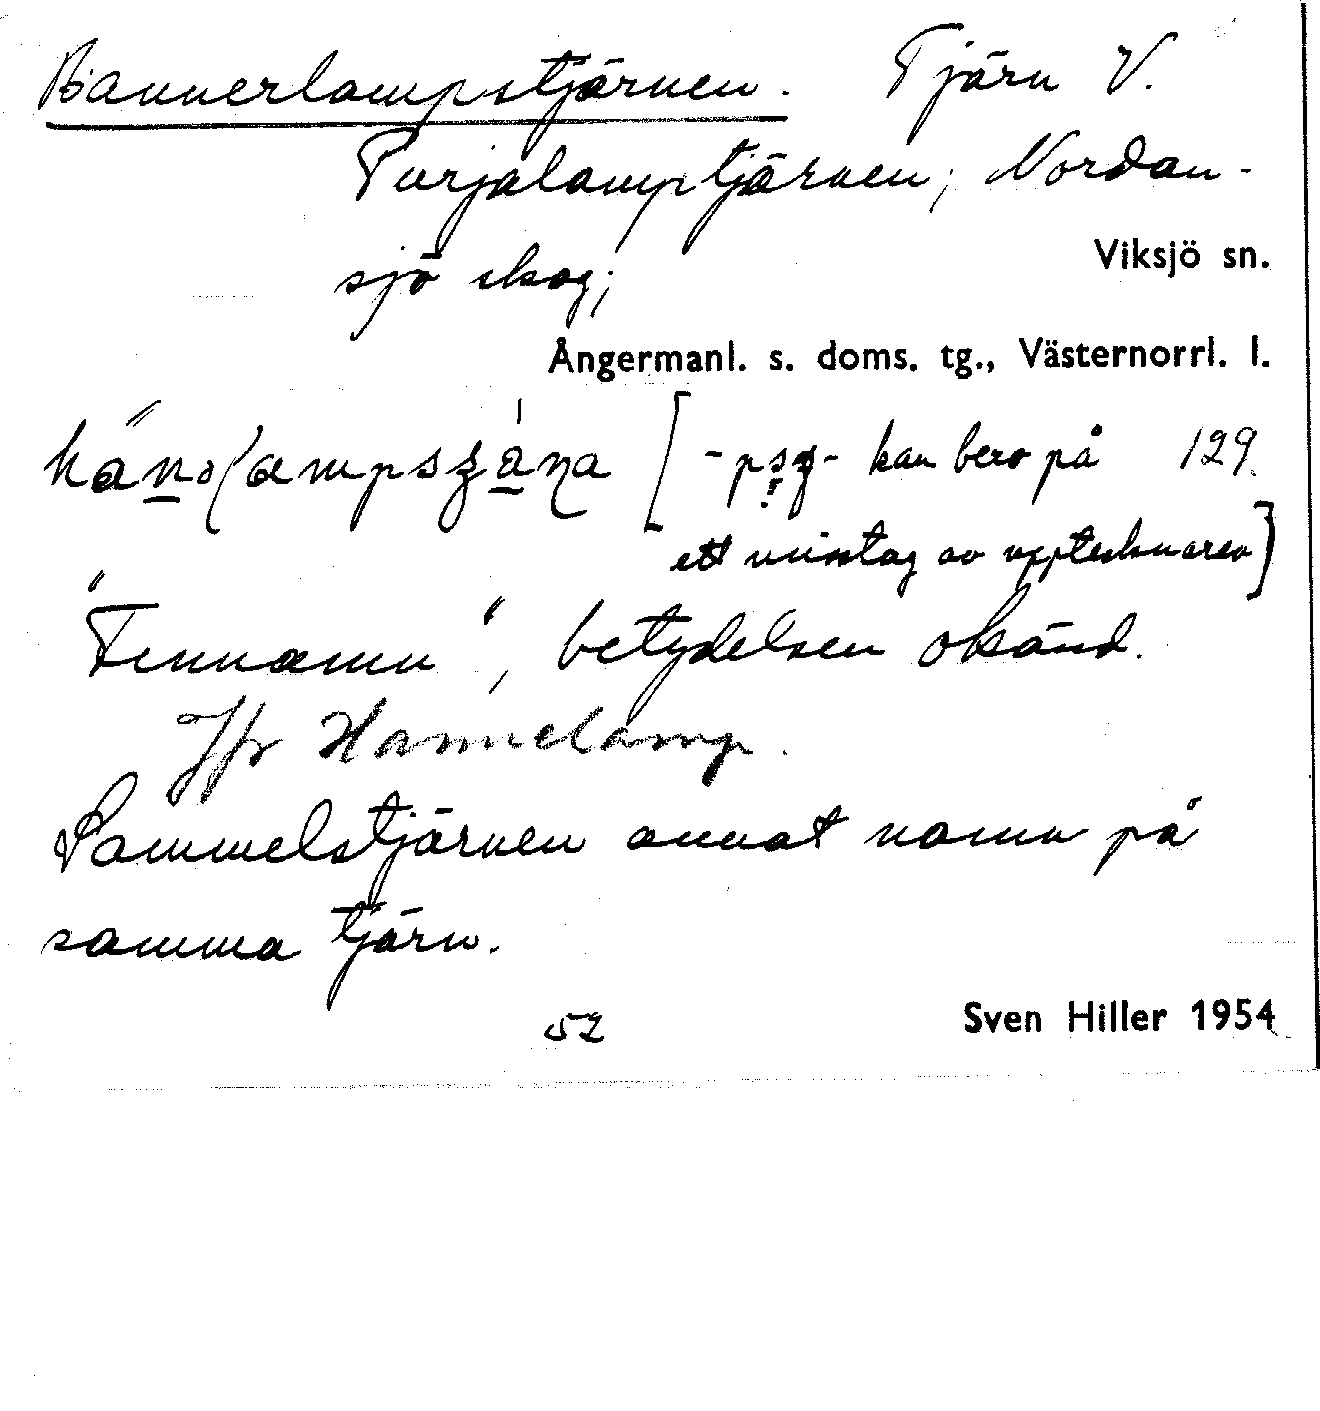 Bannerlampstjärnen. Tjärn V.
Purjalamptjärnen; Nordan-
sjö skog;
Viksjö sn.
Ångermanl. s. doms. tg., Västernorrl. l.
[-psʒ- kan bero på 129.
ett misstag av upptecknaren]
"Finnamn", betydelsen okänd.
Jfr Hannelamp.
Sammelstjärnen annat namn på
samma tjärn.
52
Sven Hiller 1954